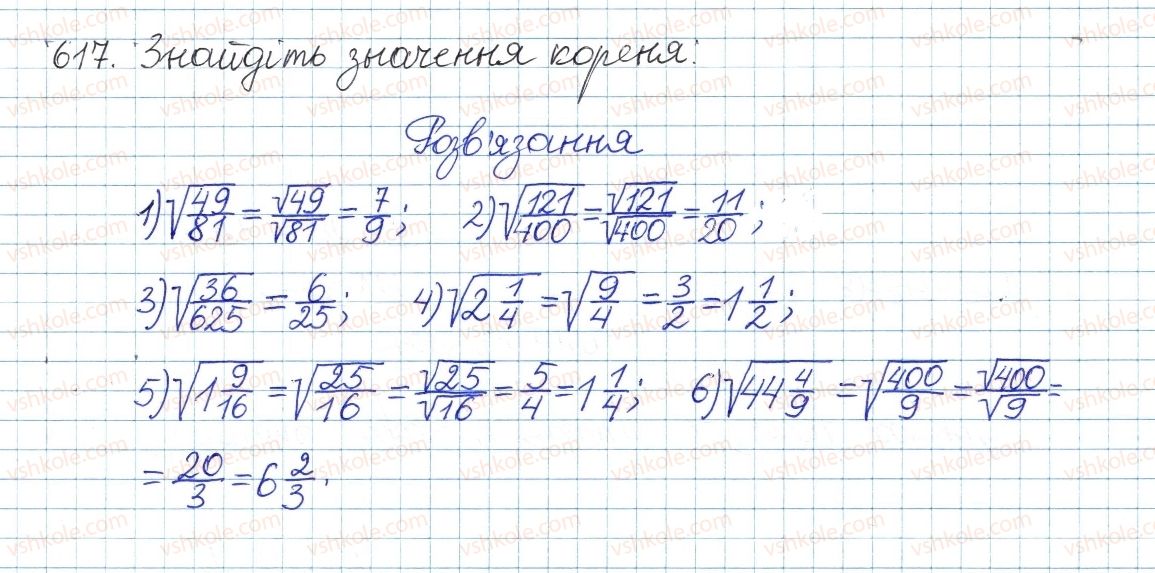 617. Знайдіть значення кореня:
Розв'язання
1) √(49/81) = √49/√81 = 7/9; 2) √(121/400) = √121/√400 = 11/20;
3) √(36/625) = 6/25; 4) √(2 1/4) = √(9/4) = 3/2 = 1 1/2;
5) √(1 9/16) = √(25/16) = √25/√16 = 5/4 = 1 1/4; 6) √(44 4/9) = √(400/9) = √400/√9 =
= 20/3 = 6 2/3.